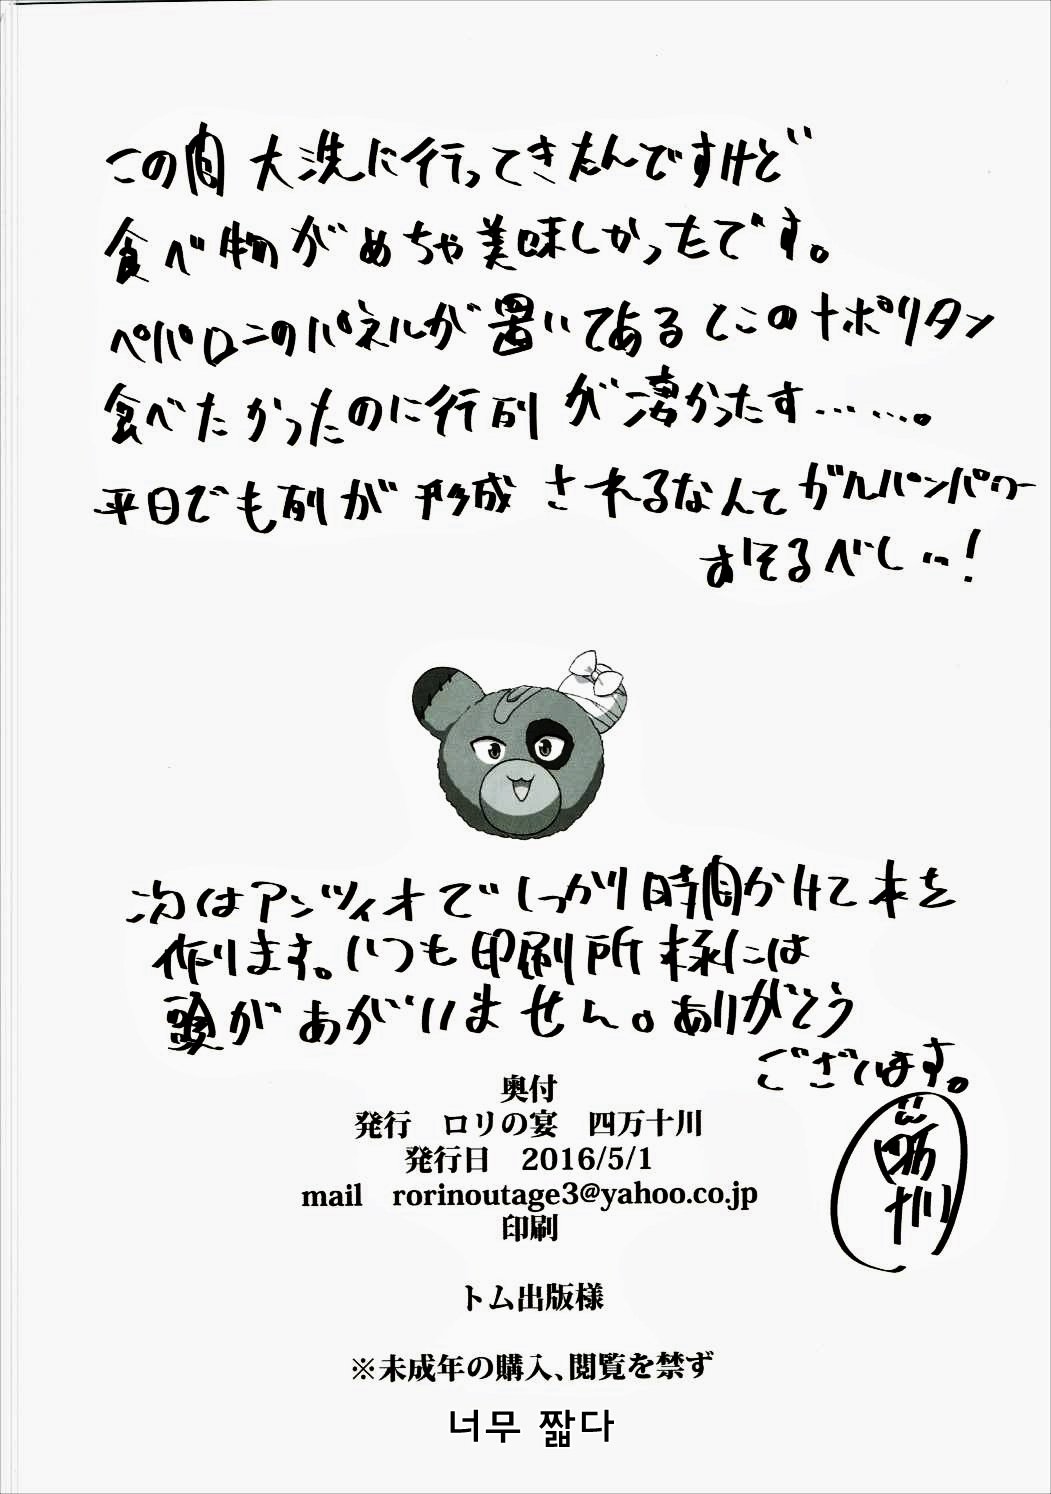 この間大洗に行ってきたんですけど
食べ物がめちゃ美味しかったです。
ペパロニのパネルが置いてあるとこのナポリタン
食べたかったのに行列が凄かったす……。
平日でも列が形成されるなんてガルパンパワー
おそるべし…！
次はアンツィオでしっかり時間かけて本を
作ります。いつも印刷所様には
頭があがいません。ありがとう
ございます。
四万十川
奥付
発行　ロリの宴　四万十川
発行日　2016/5/1
mail　rorinoutage3@yahoo.co.jp
印刷
トム出版様
※未成年の購入、閲覧を禁ず
너무 짧다